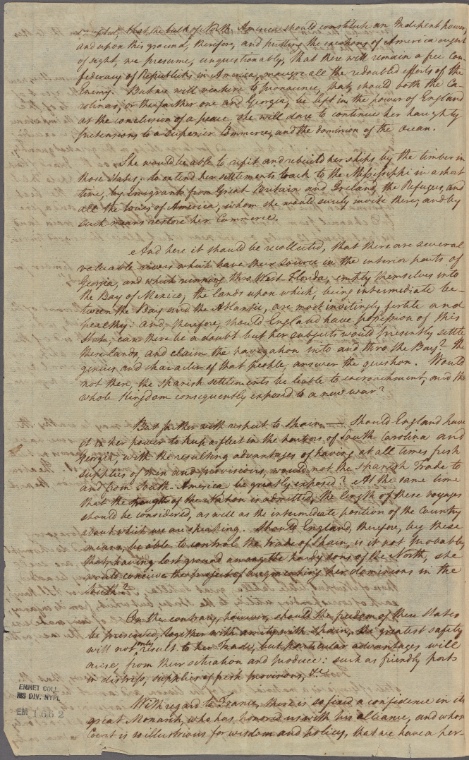 that the bulk of North America should constitute an Independent power,
and upon this ground, therefore, and pushing the vocations of America out
of sight, we presume, unquestionably, that there will remain a free Con-
federacy of Republicks in America, maugre all the redoubled efforts of the
Enemy. But we will venture to pronounce, that, should both the Ca-
rolinas or the further one and Georgia, be left in the power of England
at the conclusion of a peace, she will dare to continue her haughty
pretensions to a Superior Commerce, and the dominion of the Ocean.
She would be able to refit and rebuild her ships by the timber in
those States, to extend her settlements back to the Mississippi in a short
time, by Emigrants from Great Britain and Ireland, the Refugees, and
all the tories of America, whom she would surely invite there; and by
such means restore her Commerce.
And here it should be recollected, that there are several
valuable rivers which have their source in the interior parts of
Georgia, and which running thro West Florida, empty themselves into
the Bay of Mexico, the lands upon which, being intermediate be-
tween the Bay and the Atlantic, are most invitingly fertile and
healthy: and, therefore, should England have possession of this
State, can there be a doubt but her subjects would presently settle
these lands, and claim the navigation into and thro the Bay? the
genius and character of that people, answer the question. Would
not then, the Spanish settlements be liable to encroachment, and the
whole Kingdom consequently exposed to a new war?
But farther with respect to Spain. — Should England have
it in her power to keep a fleet in the harbors of South Carolina and
Georgia, with the resulting advantages of having at all times fresh
supplies of men and provisions, would not the Spanish Trade to
and from South America be greatly exposed? At the same time
that the of the station is admitted, the length of these voyages
should be considered, as well as the intermediate position of the Country
about which we are speaking. Should England, therefore, by these
means, be able to controul the trade of Spain, is it not probable
that having lost ground among the hardy sons of the North, she
would conceive the project of her dominions in the
On the contrary, however, should the freedom of these States
be preserved, together with amity with Spain, the greatest safety
will not only result to her Trade, but particular advantages will
arise, from their situation and produce: such as friendly ports
in distress, supplies of fresh provisions, &c.
With regard to France, there is so fixed a confidence in its
great Monarch, who has honored us with his alliance, and whose
Court is so illustrious for wisdom and policy, that we have a per-
EMMET COLL
MS DIV. NYPL
EM 1552